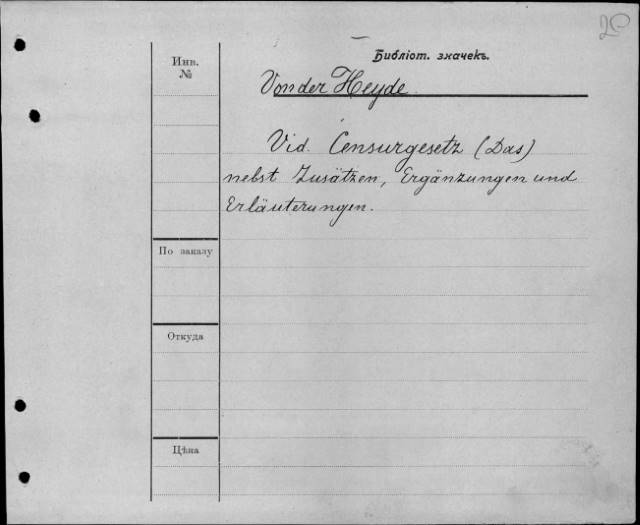 Библіот. значекъ.
Инв.
№
Von der Heyde.
Vid. Censurgesetz (Das)
nebst Zusätzen, Ergänzungen und
Erläuterungen.
По заказу
Откуда
Цѣна